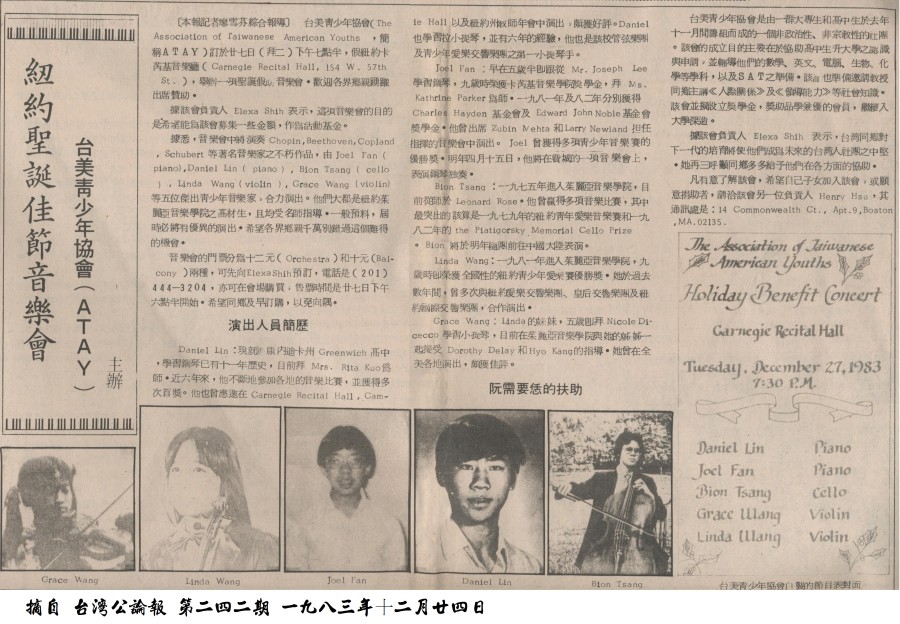 紐約聖誕佳節音樂會
台美青少年協會(ATAY)
主辦
〔本報記者廖雪芬綜合報導〕 台美青少年協會(The
Association of Taiwanese American Youths ,簡
稱ATAY)訂於廿七日(拜二)下午七點半,假紐約卡
芮基音樂廳(Carnegie Recital Hall, 154 W. 57th
St.),舉辦一項聖誕假音樂會,歡迎各界鄉親踴躍
出席贊助。
據該會負責人 Elexa Shih 表示,這項音樂會的目的
是希望能為該會募集一些金額,作為活動基金。
據悉,音樂會中將演奏Chopin,Beethoven,Copland
, Schubert 等著名音樂家之不朽作品,由 Joel Fan(
piano),Daniel Lin( piano ), Bion Tsang ( cello
), Linda Wang(violin), Grace Wang (violin)
等五位傑出青少年音樂家,合力演出。他們大都是紐約茱
麗亞音樂學院之高材生,且均受名師指導。一般預料,屆
時必將有優異的演出。希望各界鄉親千萬別錯過這個難得
的機會。
音樂會的門票分為十二元(Orchestra)和十元(Bal-
cony )兩種,可先向Elexa Shih預訂,電話是(201)
444-3204,亦可在會場購買,售票時間是廿七日下午
六點半開始。希望同鄉及早訂購,以免向隅。
演出人員簡歷
Daniel Lin:現就讀康內迪卡州 Greenwich 高中
,學習鋼琴已有十一年歷史,目前拜 Mrs. Rita Kuo為
師。近六年來,他不斷地參加各地的音樂比賽,並獲得多
次首獎。他也曾應邀在 Carnegie Recital Hall, Cam-
ie Hall 以及紐約州教師年會中演出,頗獲好評。Daniel
也學習拉小提琴,並有六年的經驗,他也是該校管弦樂團
及青少年愛樂交響樂團之第一小提琴手。
Joel Fan:早在五歲半即跟從 Mr. Joseph Lee
學習鋼琴,九歲時榮獲卡芮基音樂學院獎學金,拜 Ms.
Kathrine Parker 為師。一九八一年及八二年分別獲得
Charles Hayden 基金會及 Edward John Noble基金會
獎學金。他曾出席 Zubin Mehta 和Larry Newland 担任
指揮的音樂會中演出。Joel 曾獲得多項青少年音樂賽的
優勝獎。明年四月十五日,他將在費城的一項音樂會上,
表演鋼琴獨奏。
Bion Tsang:一九七五年進入茱麗亞音樂學院,目
前從師於 Leonard Rose。他曾贏得多項音樂比賽,其中
最突出的該算是一九七九年的紐約青年愛樂音樂賽和一九
八二年的 the Piatigorsky Memorial Cello Prize
。Bion 將於明年隨團前往中國大陸表演。
Linda Wang:一九八一年進入茱麗亞音樂學院,九
歲時即榮獲全國性的紐約青少年愛樂賽優勝獎。她於過去
數年間,曾多次與紐約愛樂交響樂團、皇后交響樂團及紐
約國際交響樂團,合作演出。
Grace Wang:Linda的妹妹,五歲即拜 Nicole Di-
cecco 學習小提琴,目前在茱麗亞音樂學院與她的姊姊一
起接受 Dorothy Delay 和 Hyo Kang的指導。她曾在全
美各地演出,頗獲佳評。
阮需要恁的扶助
台美青少年協會是由一群大專生和高中生於去年
十一月間籌組而成的一個非政治性、非宗教性的社團
。該會的成立目的主要在於協助高中生升大學之認識
與申請,並輔導他們的數學、英文、電腦、生物、化
學等學科,以及SAT之準備。該會也準備邀請教授
同鄉主講《人際關係》及《領導能力》等社會知識。
該會並擬設立獎學金,獎助品學兼優的會員,繼續入
大學深造。
據該會負責人 Elexa Shih 表示,台湾同鄉對
下一代的培育將使他們成為未來的台灣人社團之中堅
。她再三呼籲同鄉多多給予他們在各方面的協助。
凡有意了解該會,希望自己子女加入該會,或願
意捐助者,請洽該會另一位負責人 Henry Hsu,其
通訊處是:14 Commonwealth Ct., Apt.9,Boston
,MA.02135.
The Association of Taiwanese
American Youths
Holiday Benefit Concert
Carnegie Recital Hall
Tuesday, December 27, 1983
7:30 P.M.
Daniel Lin Piano
Joel Fan Piano
Bion Tsang Cello
Grace Wang Violin
Linda Wang Violin
Grace Wang
Linda Wang
Joel Fan
Daniel Lin
Bion Tsang
摘自 台湾公論報 第二四二期 一九八三年十二月廿四日